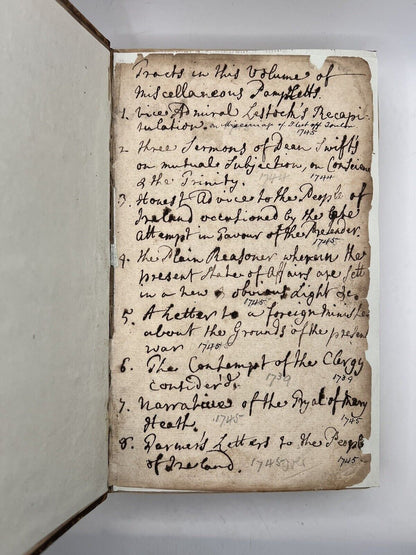 Tracts in this Volume of
Miscellaneous Pamphletts.
1. Vice Admiral Lestock's Recapi-
tulation. on Miscarriage of Fleet off Toulon
1745
2. three Sermons of Dean Swifts
on mutual Subjection, on Conscience
& the Trinity. 1744 1744
3. Honest Advice to the People of
Ireland occationed by the late
Attempt in favour of the Pretender.
1745
4. the Plain Reasoner wherein the
present State of Affairs are sett
in a new & obvious Light &c.
1745
5. A Letter to a foreign Minister
about the Grounds of the present
war 1745
6. The Contempt of the Clergy
consider'd. 1739 1739
7. Narrative of the Tryal of Mary
Heath. 1745
8. Farmer's Letters to the People
of Ireland. 1745 1745